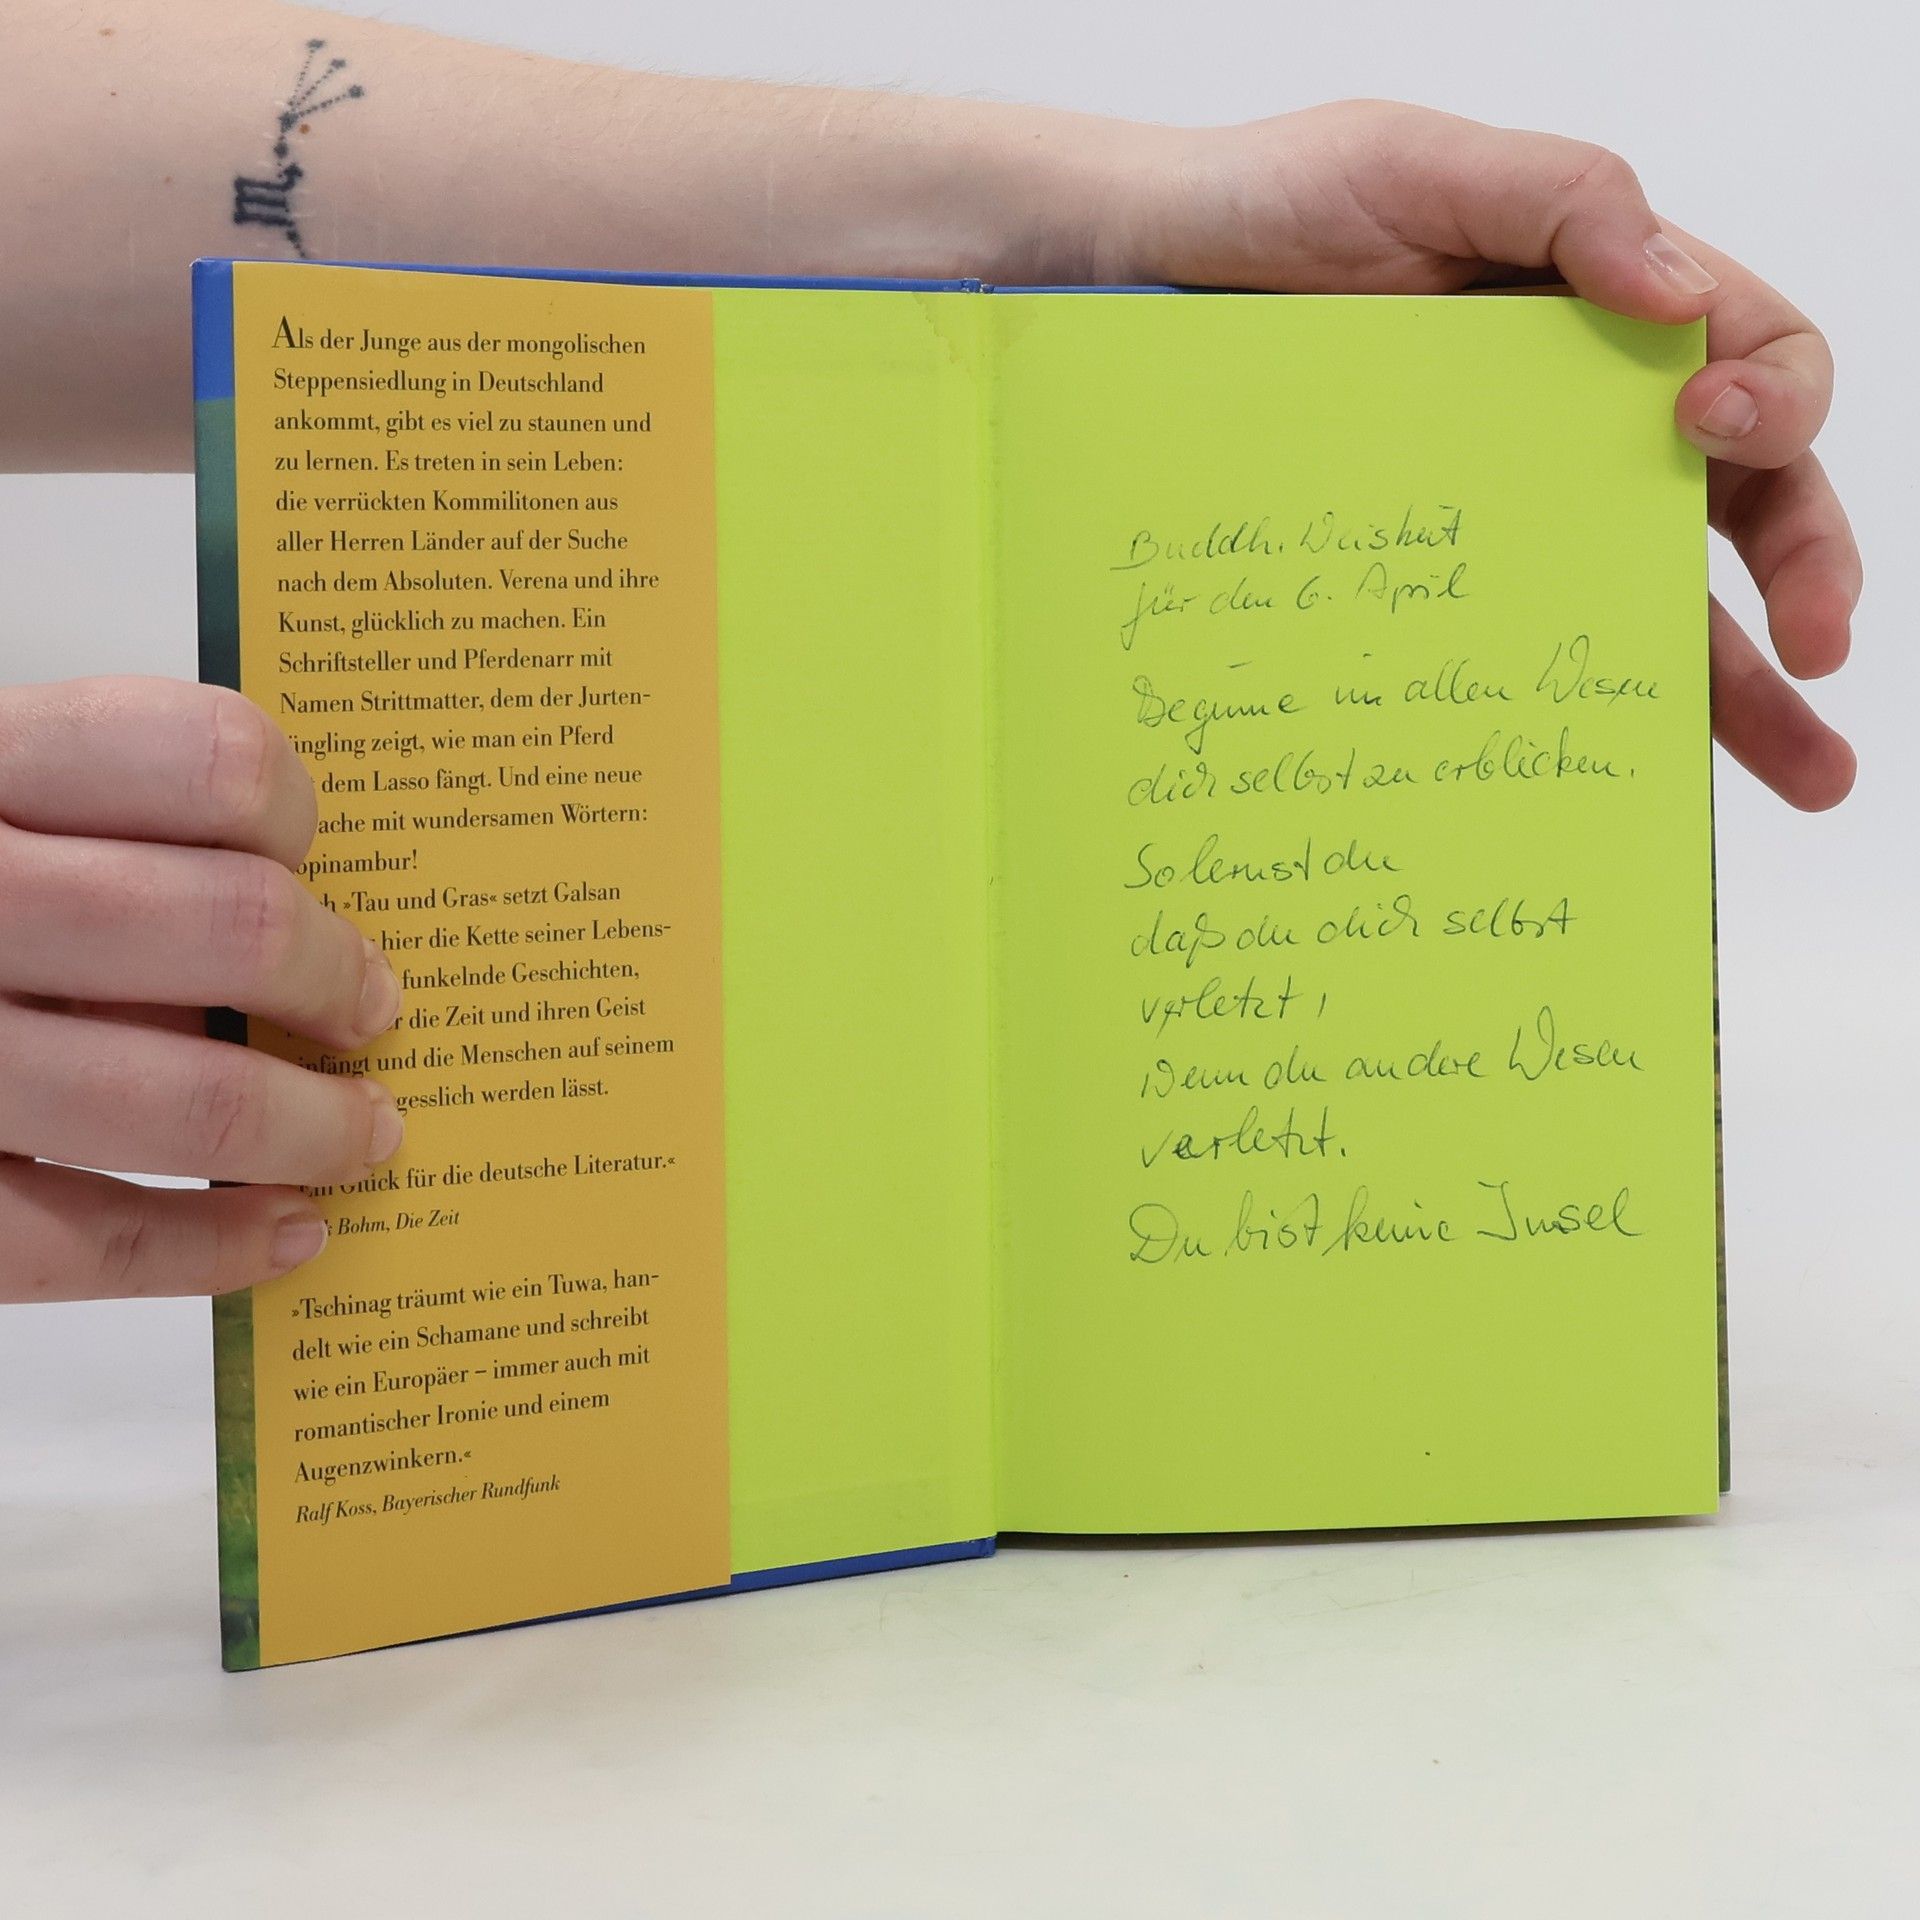 Als der Junge aus der mongolischen
Steppensiedlung in Deutschland
ankommt, gibt es viel zu staunen und
zu lernen. Es treten in sein Leben:
die verrückten Kommilitonen aus
aller Herren Länder auf der Suche
nach dem Absoluten. Verena und ihre
Kunst, glücklich zu machen. Ein
Schriftsteller und Pferdenarr mit
Namen Strittmatter, dem der Jurten-
üngling zeigt, wie man ein Pferd
dem Lasso fängt. Und eine neue
ache mit wundersamen Wörtern:
opinambur!
h »Tau und Gras« setzt Galsan
hier die Kette seiner Lebens-
funkelnde Geschichten,
r die Zeit und ihren Geist
infängt und die Menschen auf seinem
gesslich werden lässt.
Ein Glück für die deutsche Literatur.«
Bohm, Die Zeit
»Tschinag träumt wie ein Tuwa, han-
delt wie ein Schamane und schreibt
wie ein Europäer – immer auch mit
romantischer Ironie und einem
Augenzwinkern.«
Ralf Koss, Bayerischer Rundfunk
Buddh. Weisheit
für den 6. April
Beginne in allen Wesen
dich selbst zu erblicken.
So lernst du
daß du dich selbst
verletzt,
wenn du andere Wesen
verletzt.
Du bist keine Insel